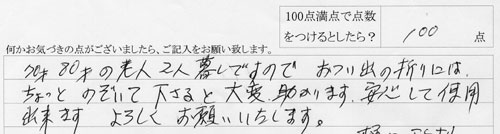 100点満点で点数
をつけるとしたら？ 100 点
何かお気づきの点がございましたら、ご記入をお願い致します。
70才 80才の老人 2人暮しですので おつい出の折りには、
ちょっと のぞいて 下さると 大変 助かります。安心して使用
出来ます よろしく お願いいたします。